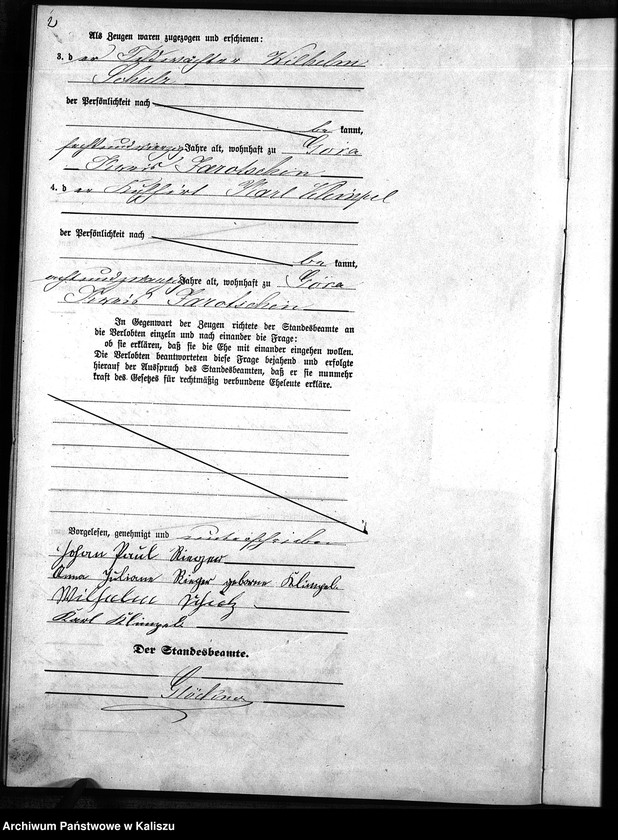 2
Als Zeugen waren zugezogen und erschienen:
3. der Feldwächter Wilhelm
der Persönlichkeit nach
be kannt,
sechsundvierzig Jahre alt, wohnhaft zu Góra
Kreis Jarotschin
4. der Karl Klimpel
der Persönlichkeit nach
be kannt,
achtundzwanzig Jahre alt, wohnhaft zu Góra
Kreis Jarotschin
In Gegenwart der Zeugen richtete der Standesbeamte an
die Verlobten einzeln und nach einander die Frage:
ob sie erklären, daß sie die Ehe mit einander eingehen wollen.
Die Verlobten beantworteten diese Frage bejahend und erfolgte
hierauf der Ausspruch des Standesbeamten, daß er sie nunmehr
kraft des Gesetzes für rechtmäßig verbundene Eheleute erkläre.
Vorgelesen, genehmigt und unterschrieben
Johan Paul Rieger
Anna Juliane Rieger geborne Klimpel
Wilhelm
Karl Klimpel
Der Standesbeamte.
Archiwum Państwowe w Kaliszu